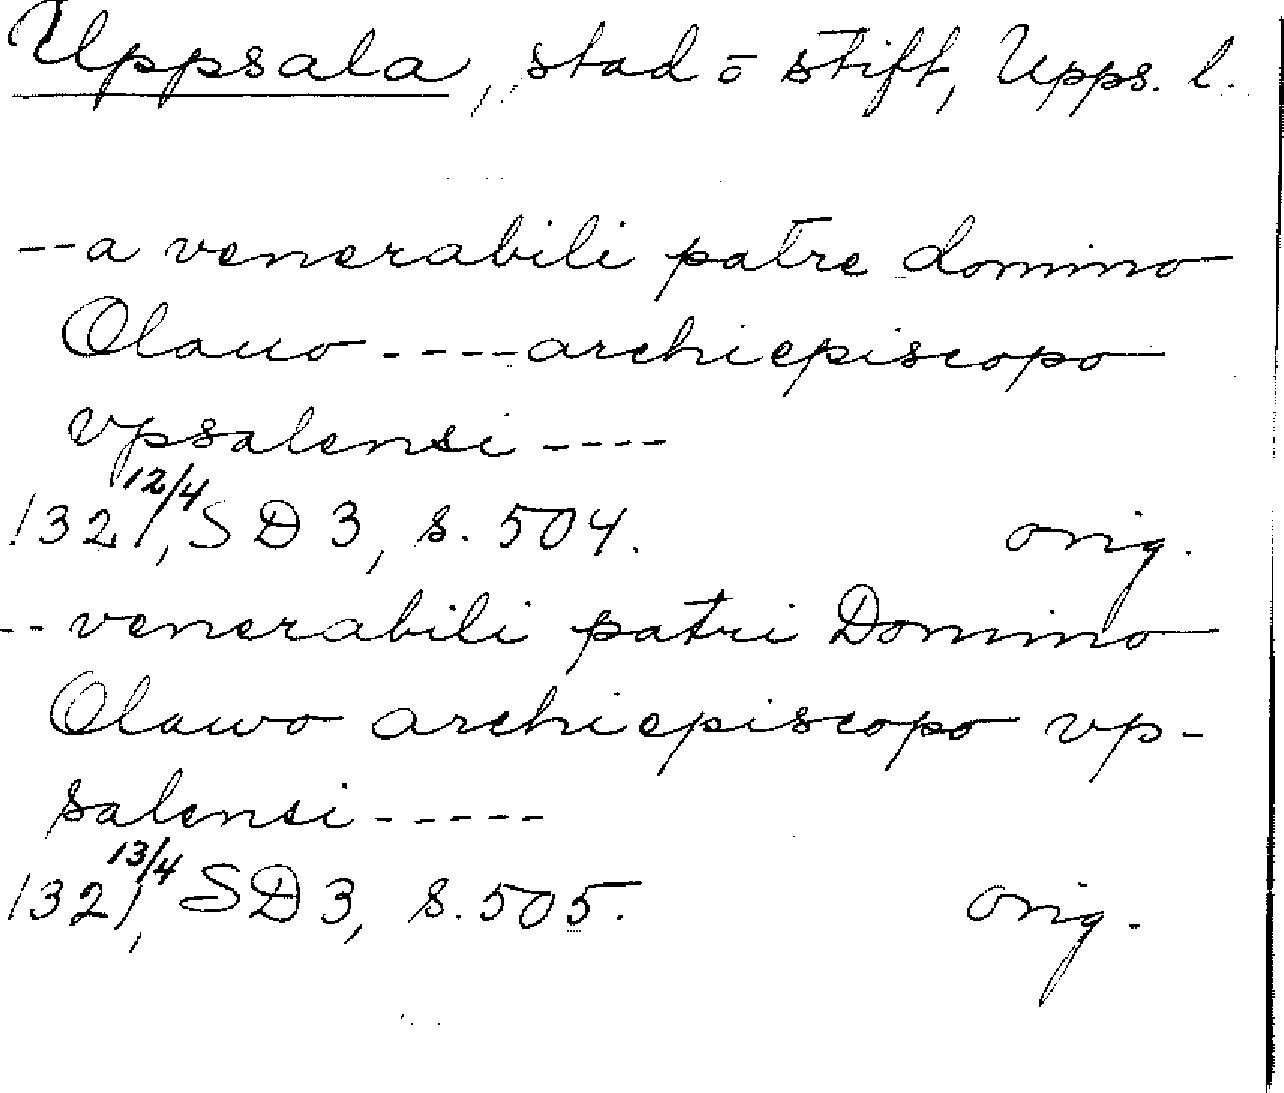 Uppsala, stad o stift, Upps. l.
--a venerabili patre domino
Olauo ----archiepiscopo
vpsalensi ----
1321 12/4, SD 3, s. 504. orig.
-- venerabili patri Domino
Olawo archiepiscopo vp-
salensi -----
1321 13/4, SD 3, s. 505. orig.